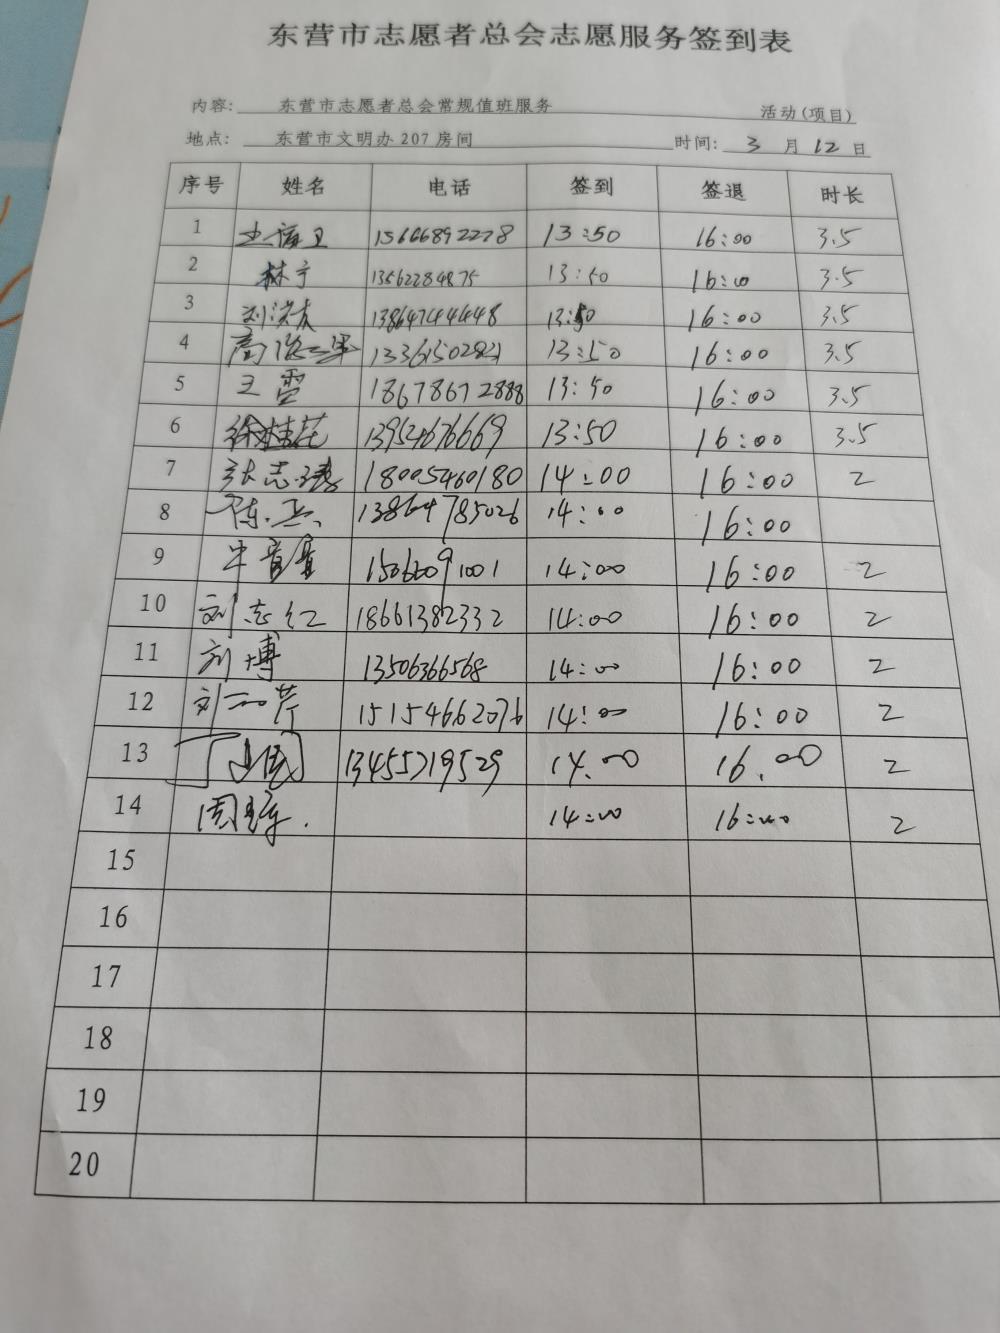 东营市志愿者总会志愿服务签到表
内容: 东营市志愿者总会常规值班服务 活动(项目)
地点: 东营市文明办 207 房间 时间: 3 月 12 日
序号 姓名 电话 签到 签退 时长
1 15666892278 13:50 16:00 3.5
2 林宁 13562284875 13:50 16:00 3.5
3 13864744448 13:50 16:00 3.5
4 13:50 16:00 3.5
5 王雪 18678672888 13:50 16:00 3.5
6 徐桂花 13:50 16:00 3.5
7 张志 18005460180 14:00 16:00 2
8 陈 13864785026 14:00 16:00
9 14:00 16:00 2
10 刘志红 18661382332 14:00 16:00 2
11 刘博 13506366568 14:00 16:00 2
12 刘 15154662076 14:00 16:00 2
13 丁 13455719529 14.00 16.00 2
14 周 14:00 16:00 2
15
16
17
18
19
20